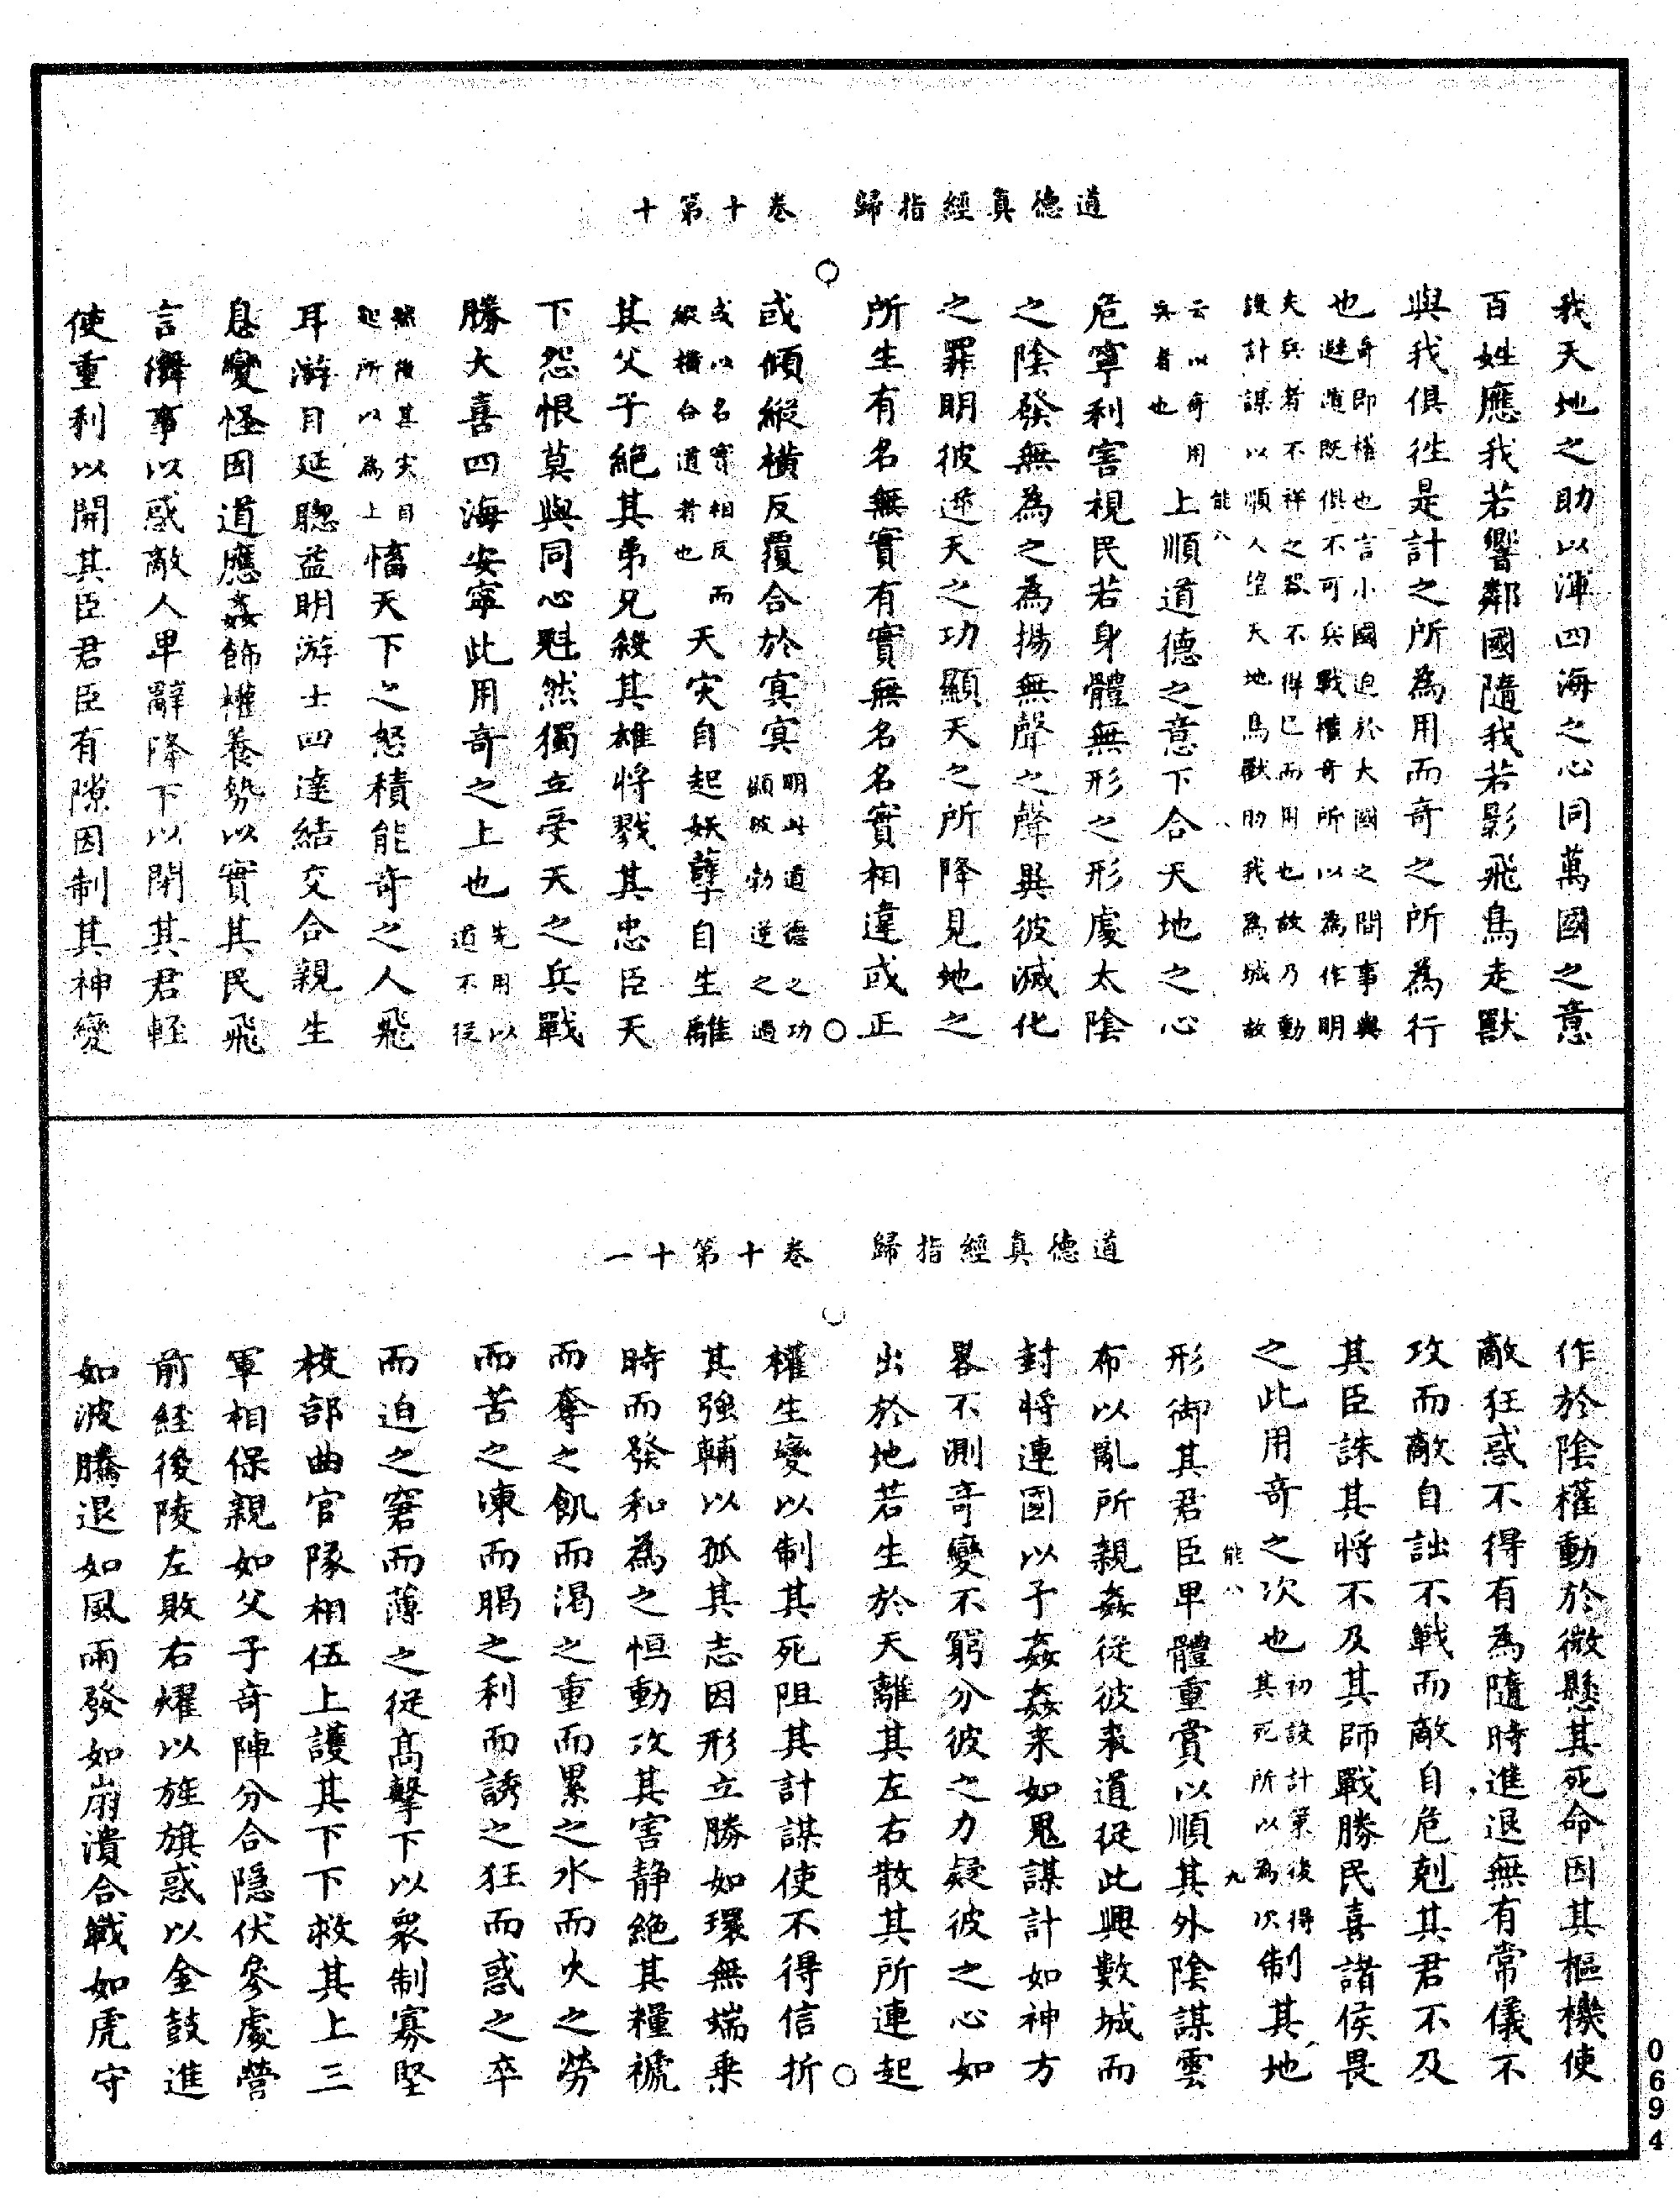 道德真經指歸　卷十第十
我天地之助以渾四海之心同萬國之意
百姓應我若響鄰國隨我若影飛鳥走獸
與我俱往是計之所為用而奇之所為行
也奇即權也言小國迫於大國之間事與
避遁既俱不可兵戰權奇所以為作明
夫兵者不祥之器不得已而用也故乃動
設計謀以順人望天地鳥獸助我為城故
能八
云以奇用
兵者也上順道德之意下合天地之心
危寧利害視民若身體無形之形處太陰
之陰發無為之為揚無聲之聲與彼滅化
之罪明彼逆天之功顯天之所降見地之
所生有名無實有實無名名實相違或正
或傾縱橫反覆合於冥冥明此道德之功
顯彼勃逆之過
或以名實相反而
縱橫合道者也天灾自起妖孽自生離
其父子絕其弟兄殺其雄將戮其忠臣天
下怨恨莫與同心魁然獨立受天之兵戰
勝大喜四海安寧此用奇之上也先用以
道不從
然後其灾自
起所以為上慉天下之怒積能奇之人飛
耳游目延聰益明游士四達結交合親生
息變怪因道應姦飾權養勢以實其民飛
言儛事以惑敵人卑辭降下以閉其君輕
使重利以開其臣君臣有隙因制其神變
道德真經指歸　卷十第十一
作於陰權動於微懸其死命因其樞機使
敵狂惑不得有為隨時進退無有常儀不
攻而敵自詘不戰而敵自危剋其君不及
其臣誅其將不及其師戰勝民喜諸侯畏
之此用奇之次也初設計策後得
其死所以為次制其地
能八　九
形御其君臣卑體重賞以順其外陰謀雲
布以亂所親姦從彼来道從此興數城而
封將連國以予姦姦来如鬼謀計如神方
畧不測奇變不窮分彼之力疑彼之心如
出於地若生於天離其左右散其所連起
權生變以制其死阻其計謀使不得信折
其強輔以孤其志因形立勝如環無端乗
時而發和為之恒動攻其害静絕其糧褫
而奪之飢而渴之重而累之水而火之勞
而苦之凍而暍之利而誘之狂而惑之卒
而迫之窘而薄之從髙擊下以衆制寡堅
校部曲官隊相伍上護其下下救其上三
軍相保親如父子奇陣分合隐伏參處營
前經後陵左敗右燿以旌旗惑以金鼓進
如波騰退如風雨發如崩潰合戰如虎守
0694